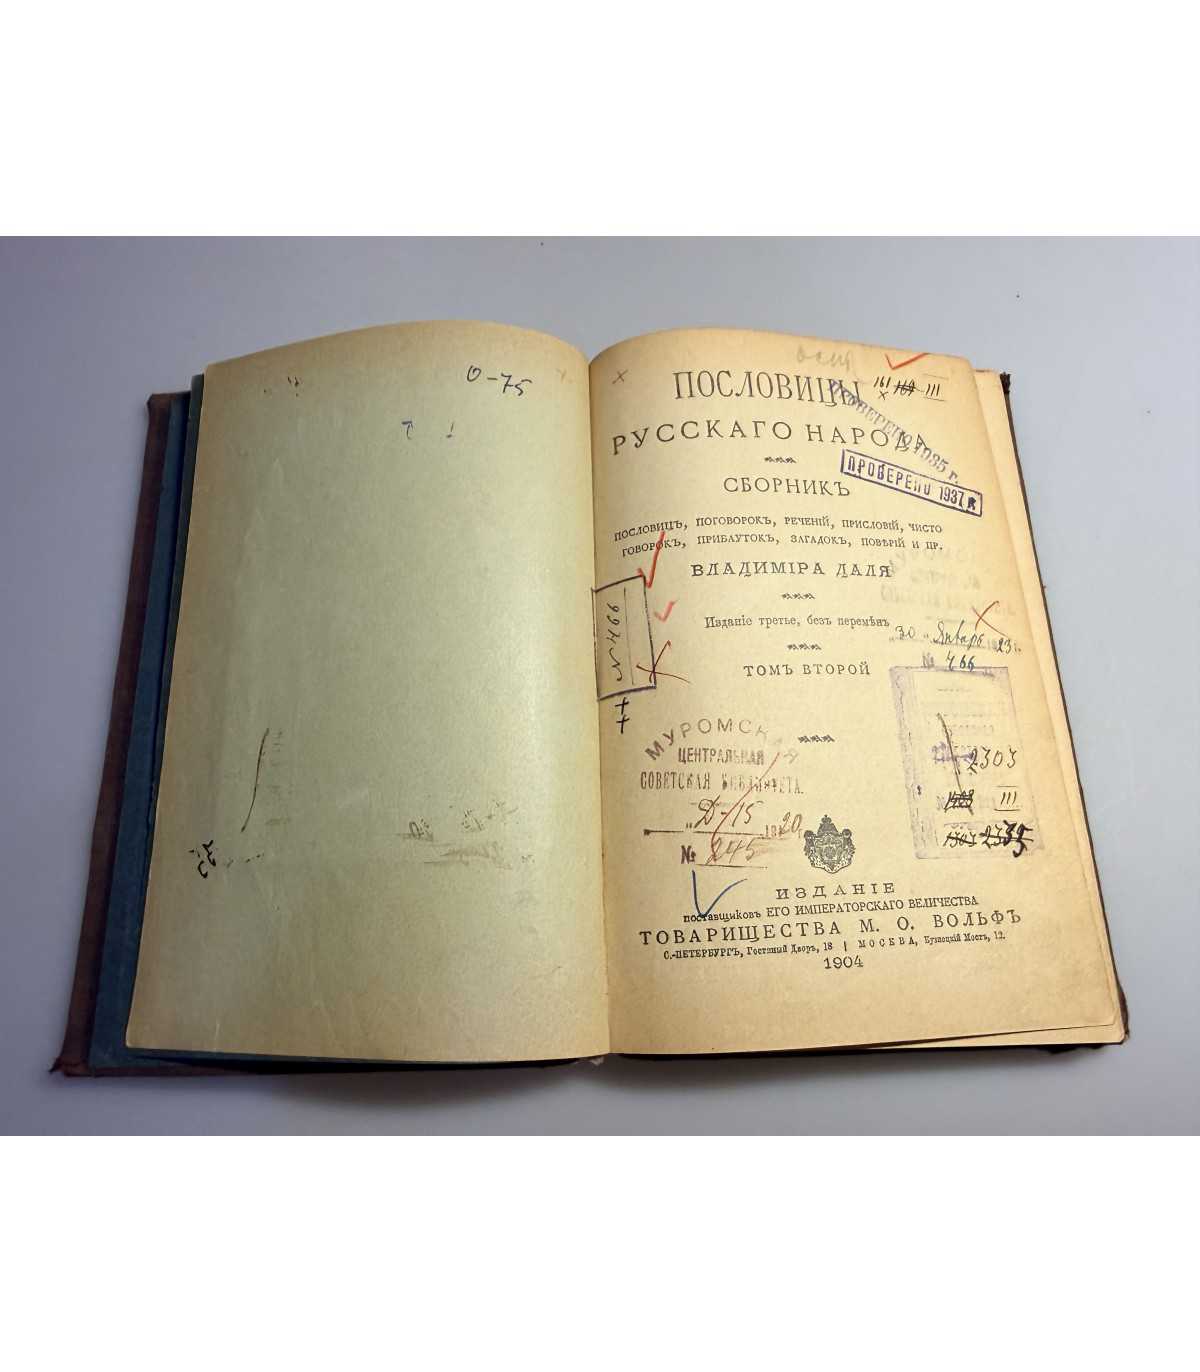 О-75
ПОСЛОВИЦЫ
161 169 III
РУССКАГО НАРОДА
ПРОВЕРЕНО 1935 г.
ПРОВЕРЕНО 1937 г.
СБОРНИКЪ
ПОСЛОВИЦЪ, ПОГОВОРОКЪ, РЕЧЕНІЙ, ПРИСЛОВІЙ, ЧИСТО
ГОВОРОКЪ, ПРИБАУТОКЪ, ЗАГАДОКЪ, ПОВѢРІЙ И ПР.
ВЛАДИМІРА ДАЛЯ
Изданіе третье, безъ перемѣнъ
"30" Январь 1923 г.
№ 466
№ 499
ТОМЪ ВТОРОЙ
МУРОМСКАЯ
ЦЕНТРАЛЬНАЯ
СОВЕТСКАЯ БИБЛИОТЕКА.
"Д-15 1920 г.
№ 245
2303
1408 III
1303 2335
ИЗДАНІЕ
поставщиковъ ЕГО ИМПЕРАТОРСКАГО ВЕЛИЧЕСТВА
ТОВАРИЩЕСТВА М. О. ВОЛЬФЪ
С.-ПЕТЕРБУРГЪ, Гостиный Дворъ, 18 | МОСКВА, Кузнецкій Мостъ, 12.
1904